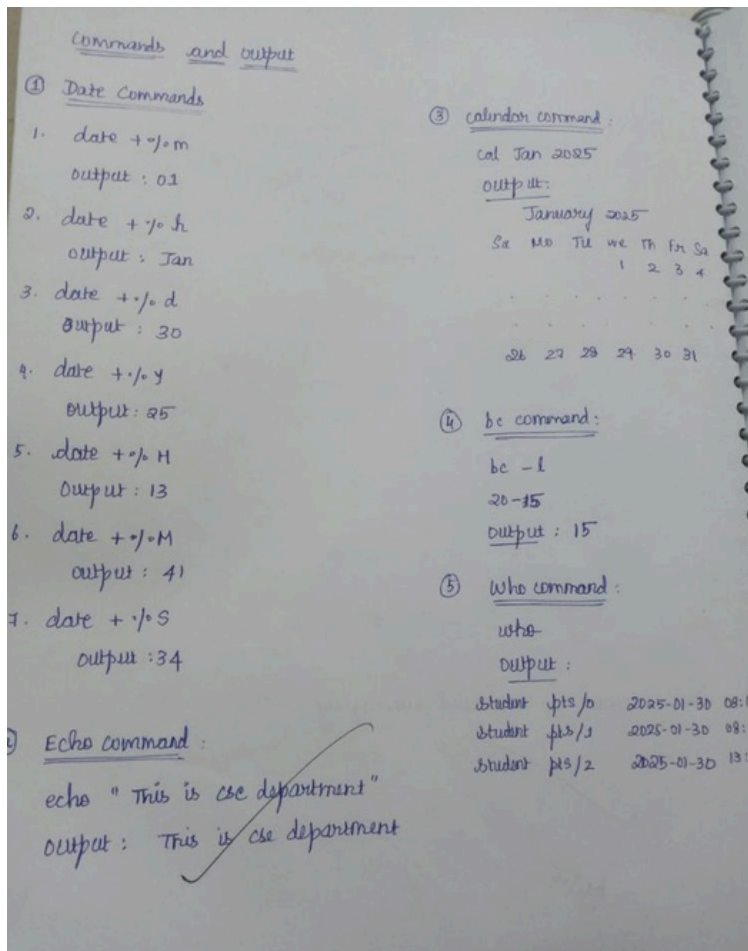 Commands and output
① Date Commands
1. date +%m
output : 01
2. date +%h
output : Jan
3. date +%d
output : 30
4. date +%y
output : 25
5. date +%H
Output : 13
6. date +%M
output : 41
7. date +%S
output : 34
Echo command :
echo " This is cse department"
output : This is cse department
③ calendar command :
cal Jan 2025
output :
January 2025
Sa Mo Tu We Th Fr Sa
1 2 3 4
. . . . . . .
. . . . . . .
26 27 28 29 30 31
④ bc command :
bc -l
20-15
output : 15
⑤ Who command :
who
Output :
student pts/0 2025-01-30 08:
student pts/1 2025-01-30 08:
student pts/2 2025-01-30 13: